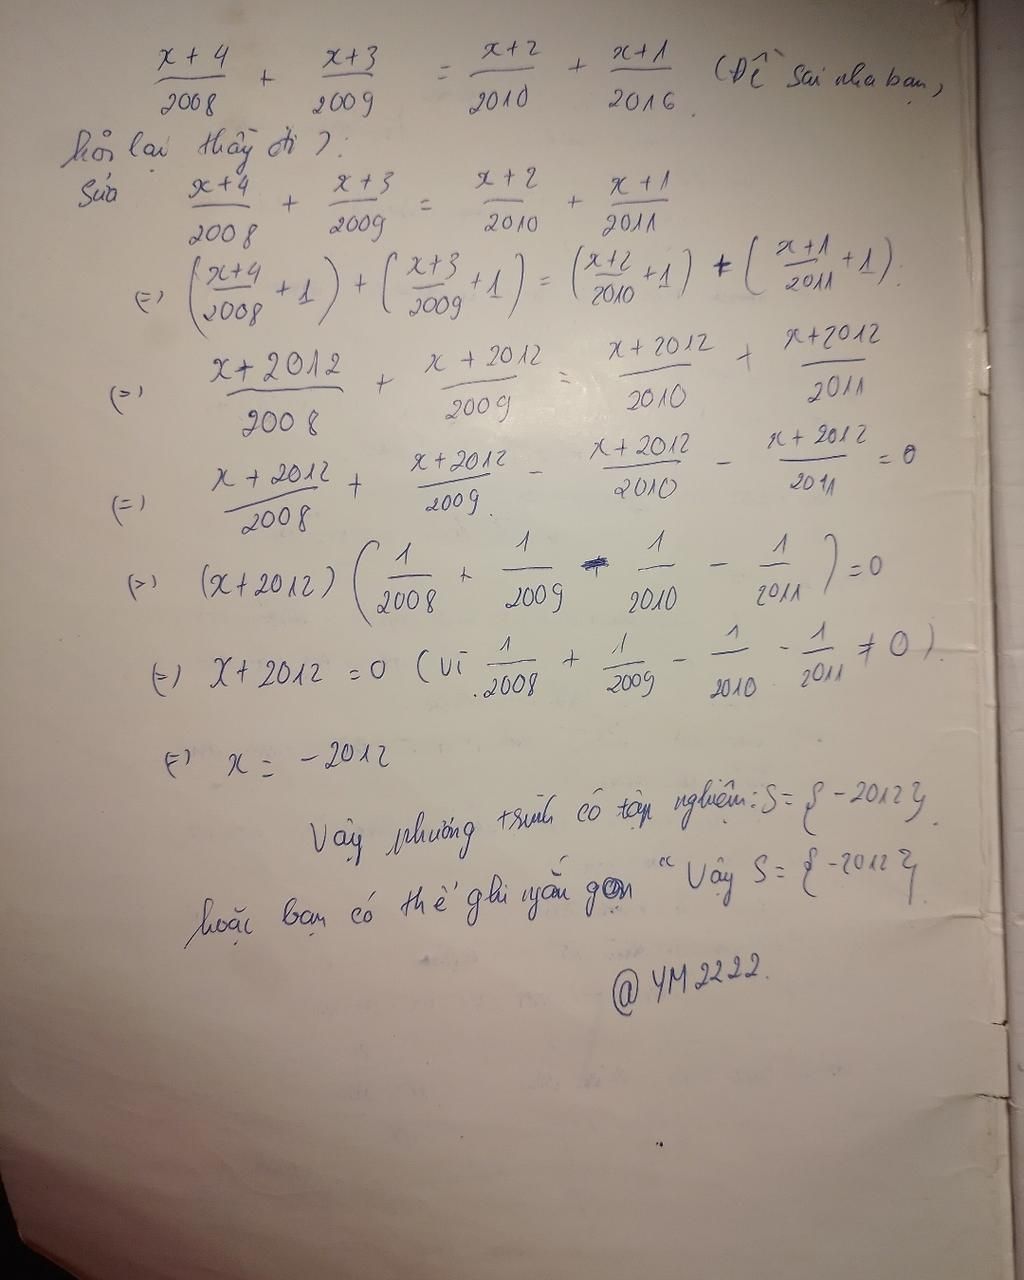 x+4/2008 + x+3/2009 = x+2/2010 + x+1/2016. (Đề sai nha bạn,
hỏi lại thầy đi):
Sửa x+4/2008 + x+3/2009 = x+2/2010 + x+1/2011
(=) (x+4/2008 + 1) + (x+3/2009 + 1) = (x+2/2010 + 1) + (x+1/2011 + 1).
(=) x+2012/2008 + x+2012/2009 = x+2012/2010 + x+2012/2011
(=) x+2012/2008 + x+2012/2009. - x+2012/2010 - x+2012/2011 = 0
(=) (x+2012) (1/2008 + 1/2009 - 1/2010 - 1/2011) = 0
(=) x+2012 = 0 (vì 1/2008 + 1/2009 - 1/2010 - 1/2011 ≠ 0).
(=) x = -2012
Vậy phương trình có tập nghiệm: S = {-2012}.
hoặc bạn có thể ghi ngắn gọn "Vậy S = {-2012}.
@YM2222.